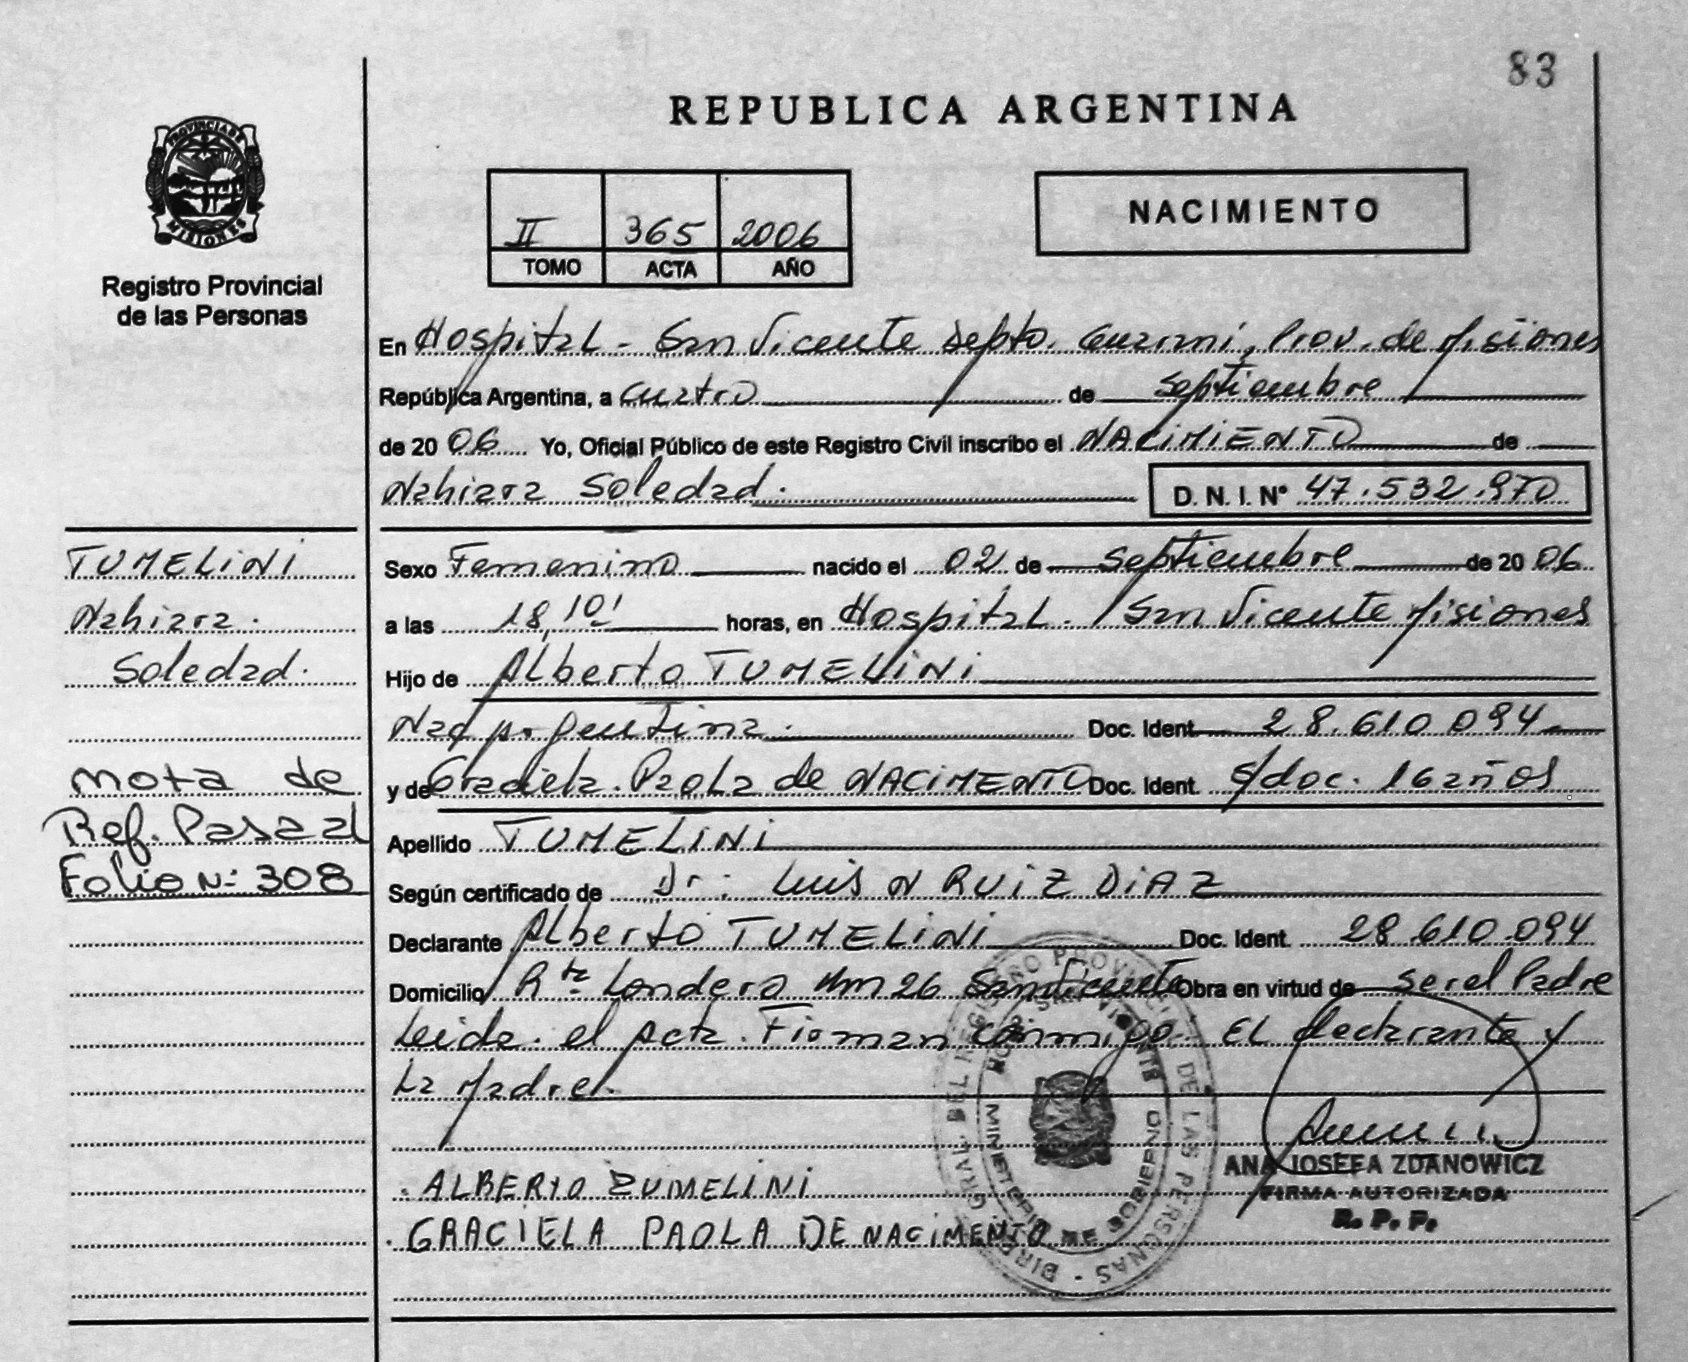 83
REPUBLICA ARGENTINA
PROVINCIA DE MISIONES
Registro Provincial
de las Personas
II 365 2006
TOMO ACTA AÑO
NACIMIENTO
En Hospital - San Vicente Depto. Guarani, Prov. de Misiones
República Argentina, a cuatro de septiembre
de 20 06 Yo, Oficial Público de este Registro Civil inscribo el NACIMIENTO de
Nahiara Soledad. D. N. I. Nº 47.532.970
TUMELINI
Nahiara.
Soledad.
Sexo Femenino nacido el 02 de septiembre de 20 06
a las 18,10' horas, en Hospital. San Vicente Misiones
Hijo de Alberto TUMELINI
Nac Argentina. Doc. Ident. 28.610.094
y de Graciela Paola de NACIMENTO Doc. Ident. s/doc. 16 años
Nota de
Ref. Pasa al
Folio N: 308
Apellido TUMELINI
Según certificado de Dr: Luis N RUIZ DIAZ
Declarante Alberto TUMELINI Doc. Ident. 28.610.094
Domicilio Rta Londero Km 26 San Vicente Obra en virtud de ser el Padre
Leida el Acta. Firman conmigo El declarante y
La Madre.
ALBERTO ZUMELINI
GRACIELA PAOLA DE NACIMENTO
DIR. GRAL. DEL REGISTRO PROVINCIAL DE LAS PERSONAS
MINISTERIO DE GOBIERNO
ANA JOSEFA ZDANOWICZ
FIRMA AUTORIZADA
R. P. P.